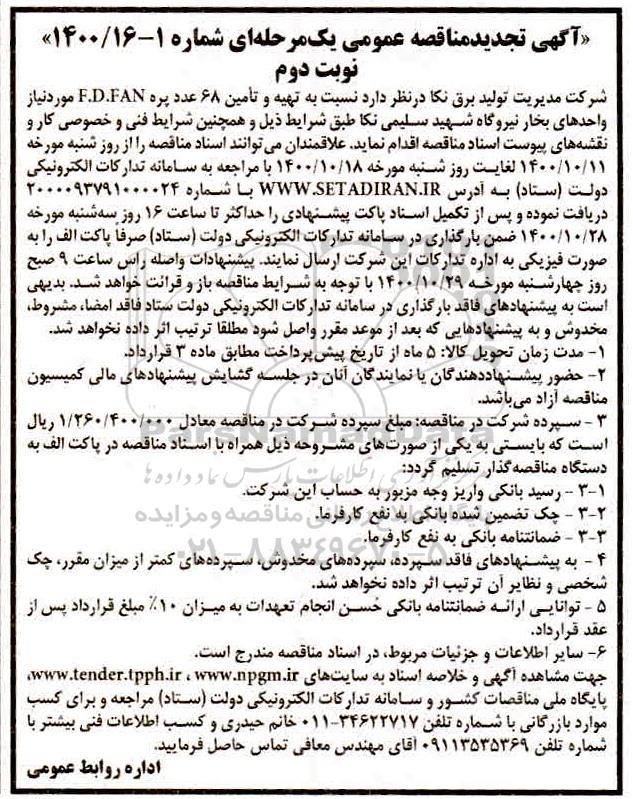 «آگهی تجدیدمناقصه عمومی یک‌مرحله‌ای شماره ۱-۱۴۰۰/۱۶»
نوبت دوم
شرکت مدیریت تولید برق نکا درنظر دارد نسبت به تهیه و تأمین ۶۸ عدد پره F.D.FAN موردنیاز
واحدهای بخار نیروگاه شهید سلیمی نکا طبق شرایط ذیل و همچنین شرایط فنی و خصوصی کار و
نقشه‌های پیوست اسناد مناقصه اقدام نماید. علاقمندان می‌توانند اسناد مناقصه را از روز شنبه مورخه
۱۴۰۰/۱۰/۱۱ لغایت روز شنبه مورخه ۱۴۰۰/۱۰/۱۸ با مراجعه به سامانه تدارکات الکترونیکی
دولت (ستاد) به آدرس WWW.SETADIRAN.IR با شماره ۲۰۰۰۰۹۳۷۹۱۰۰۰۰۲۴
دریافت نموده و پس از تکمیل اسناد پاکت پیشنهادی را حداکثر تا ساعت ۱۶ روز سه‌شنبه مورخه
۱۴۰۰/۱۰/۲۸ ضمن بارگذاری در سامانه تدارکات الکترونیکی دولت (ستاد) صرفاً پاکت الف را به
صورت فیزیکی به اداره تدارکات این شرکت ارسال نمایند. پیشنهادات واصله راس ساعت ۹ صبح
روز چهارشنبه مورخه ۱۴۰۰/۱۰/۲۹ با توجه به شرایط مناقصه باز و قرائت خواهد شد. بدیهی
است به پیشنهادهای فاقد بارگذاری در سامانه تدارکات الکترونیکی دولت ستاد فاقد امضا، مشروط،
مخدوش و به پیشنهادهایی که بعد از موعد مقرر واصل شود مطلقا ترتیب اثر داده نخواهد شد.
۱- مدت زمان تحویل کالا: ۵ ماه از تاریخ پیش‌پرداخت مطابق ماده ۳ قرارداد.
۲- حضور پیشنهاددهندگان یا نمایندگان آنان در جلسه گشایش پیشنهادهای مالی کمیسیون
مناقصه آزاد می‌باشد.
۳ - سپرده شرکت در مناقصه: مبلغ سپرده شرکت در مناقصه معادل ۱/۲۶۰/۴۰۰/۰۰۰ ریال
است که بایستی به یکی از صورت‌های مشروحه ذیل همراه با اسناد مناقصه در پاکت الف به
دستگاه مناقصه‌گذار تسلیم گردد:
۳-۱ - رسید بانکی واریز وجه مزبور به حساب این شرکت.
۳-۲ - چک تضمین شده بانکی به نفع کارفرما.
۳-۳ - ضمانتنامه بانکی به نفع کارفرما.
۴ - به پیشنهادهای فاقد سپرده، سپرده‌های مخدوش، سپرده‌های کمتر از میزان مقرر، چک
شخصی و نظایر آن ترتیب اثر داده نخواهد شد.
۵ - توانایی ارائه ضمانتنامه بانکی حُسن انجام تعهدات به میزان ۱۰٪ مبلغ قرارداد پس از
عقد قرارداد.
۶- سایر اطلاعات و جزئیات مربوط، در اسناد مناقصه مندرج است.
جهت مشاهده آگهی و خلاصه اسناد به سایت‌های www.tender.tpph.ir ، www.npgm.ir،
پایگاه ملی مناقصات کشور و سامانه تدارکات الکترونیکی دولت (ستاد) مراجعه و برای کسب
موارد بازرگانی با شماره تلفن ۳۴۶۲۲۷۱۷-۰۱۱ خانم حیدری و کسب اطلاعات فنی بیشتر با
شماره تلفن ۰۹۱۱۳۵۳۵۳۶۹ آقای مهندس معافی تماس حاصل فرمایید.
اداره روابط عمومی
ParsNamadData
پایگاه اطلاع رسانی مناقصه و مزایده
۰۲۱-۸۸۳۴۹۶۷۰-۵